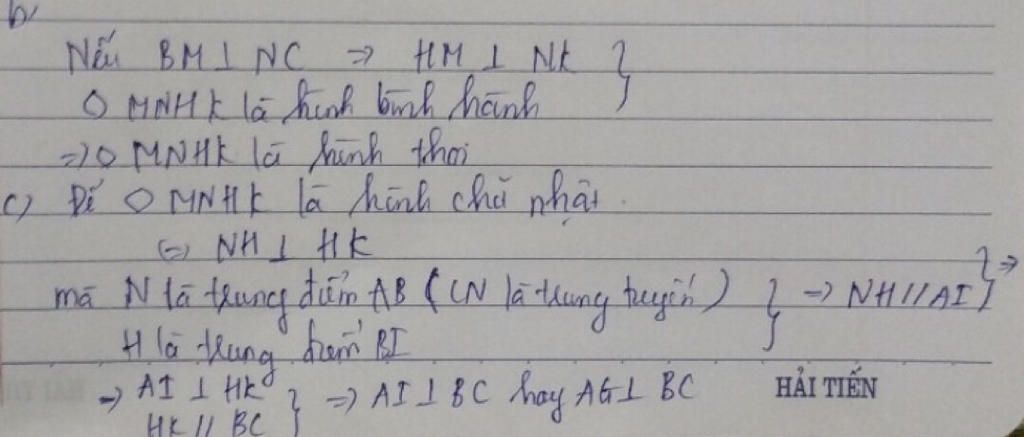 b/
Nếu BM ⊥ NC => HM ⊥ NK }
◇ MNHK là hình bình hành
=> ◇ MNHK là hình thoi
c) Để ◇ MNHK là hình chữ nhật.
(=) NH ⊥ HK
mà N là trung điểm AB (CN là trung tuyến) } => NH // AI } =>
H là trung điểm BI
→ AI ⊥ HK } => AI ⊥ BC hay AG ⊥ BC HẢI TIẾN
HK // BC